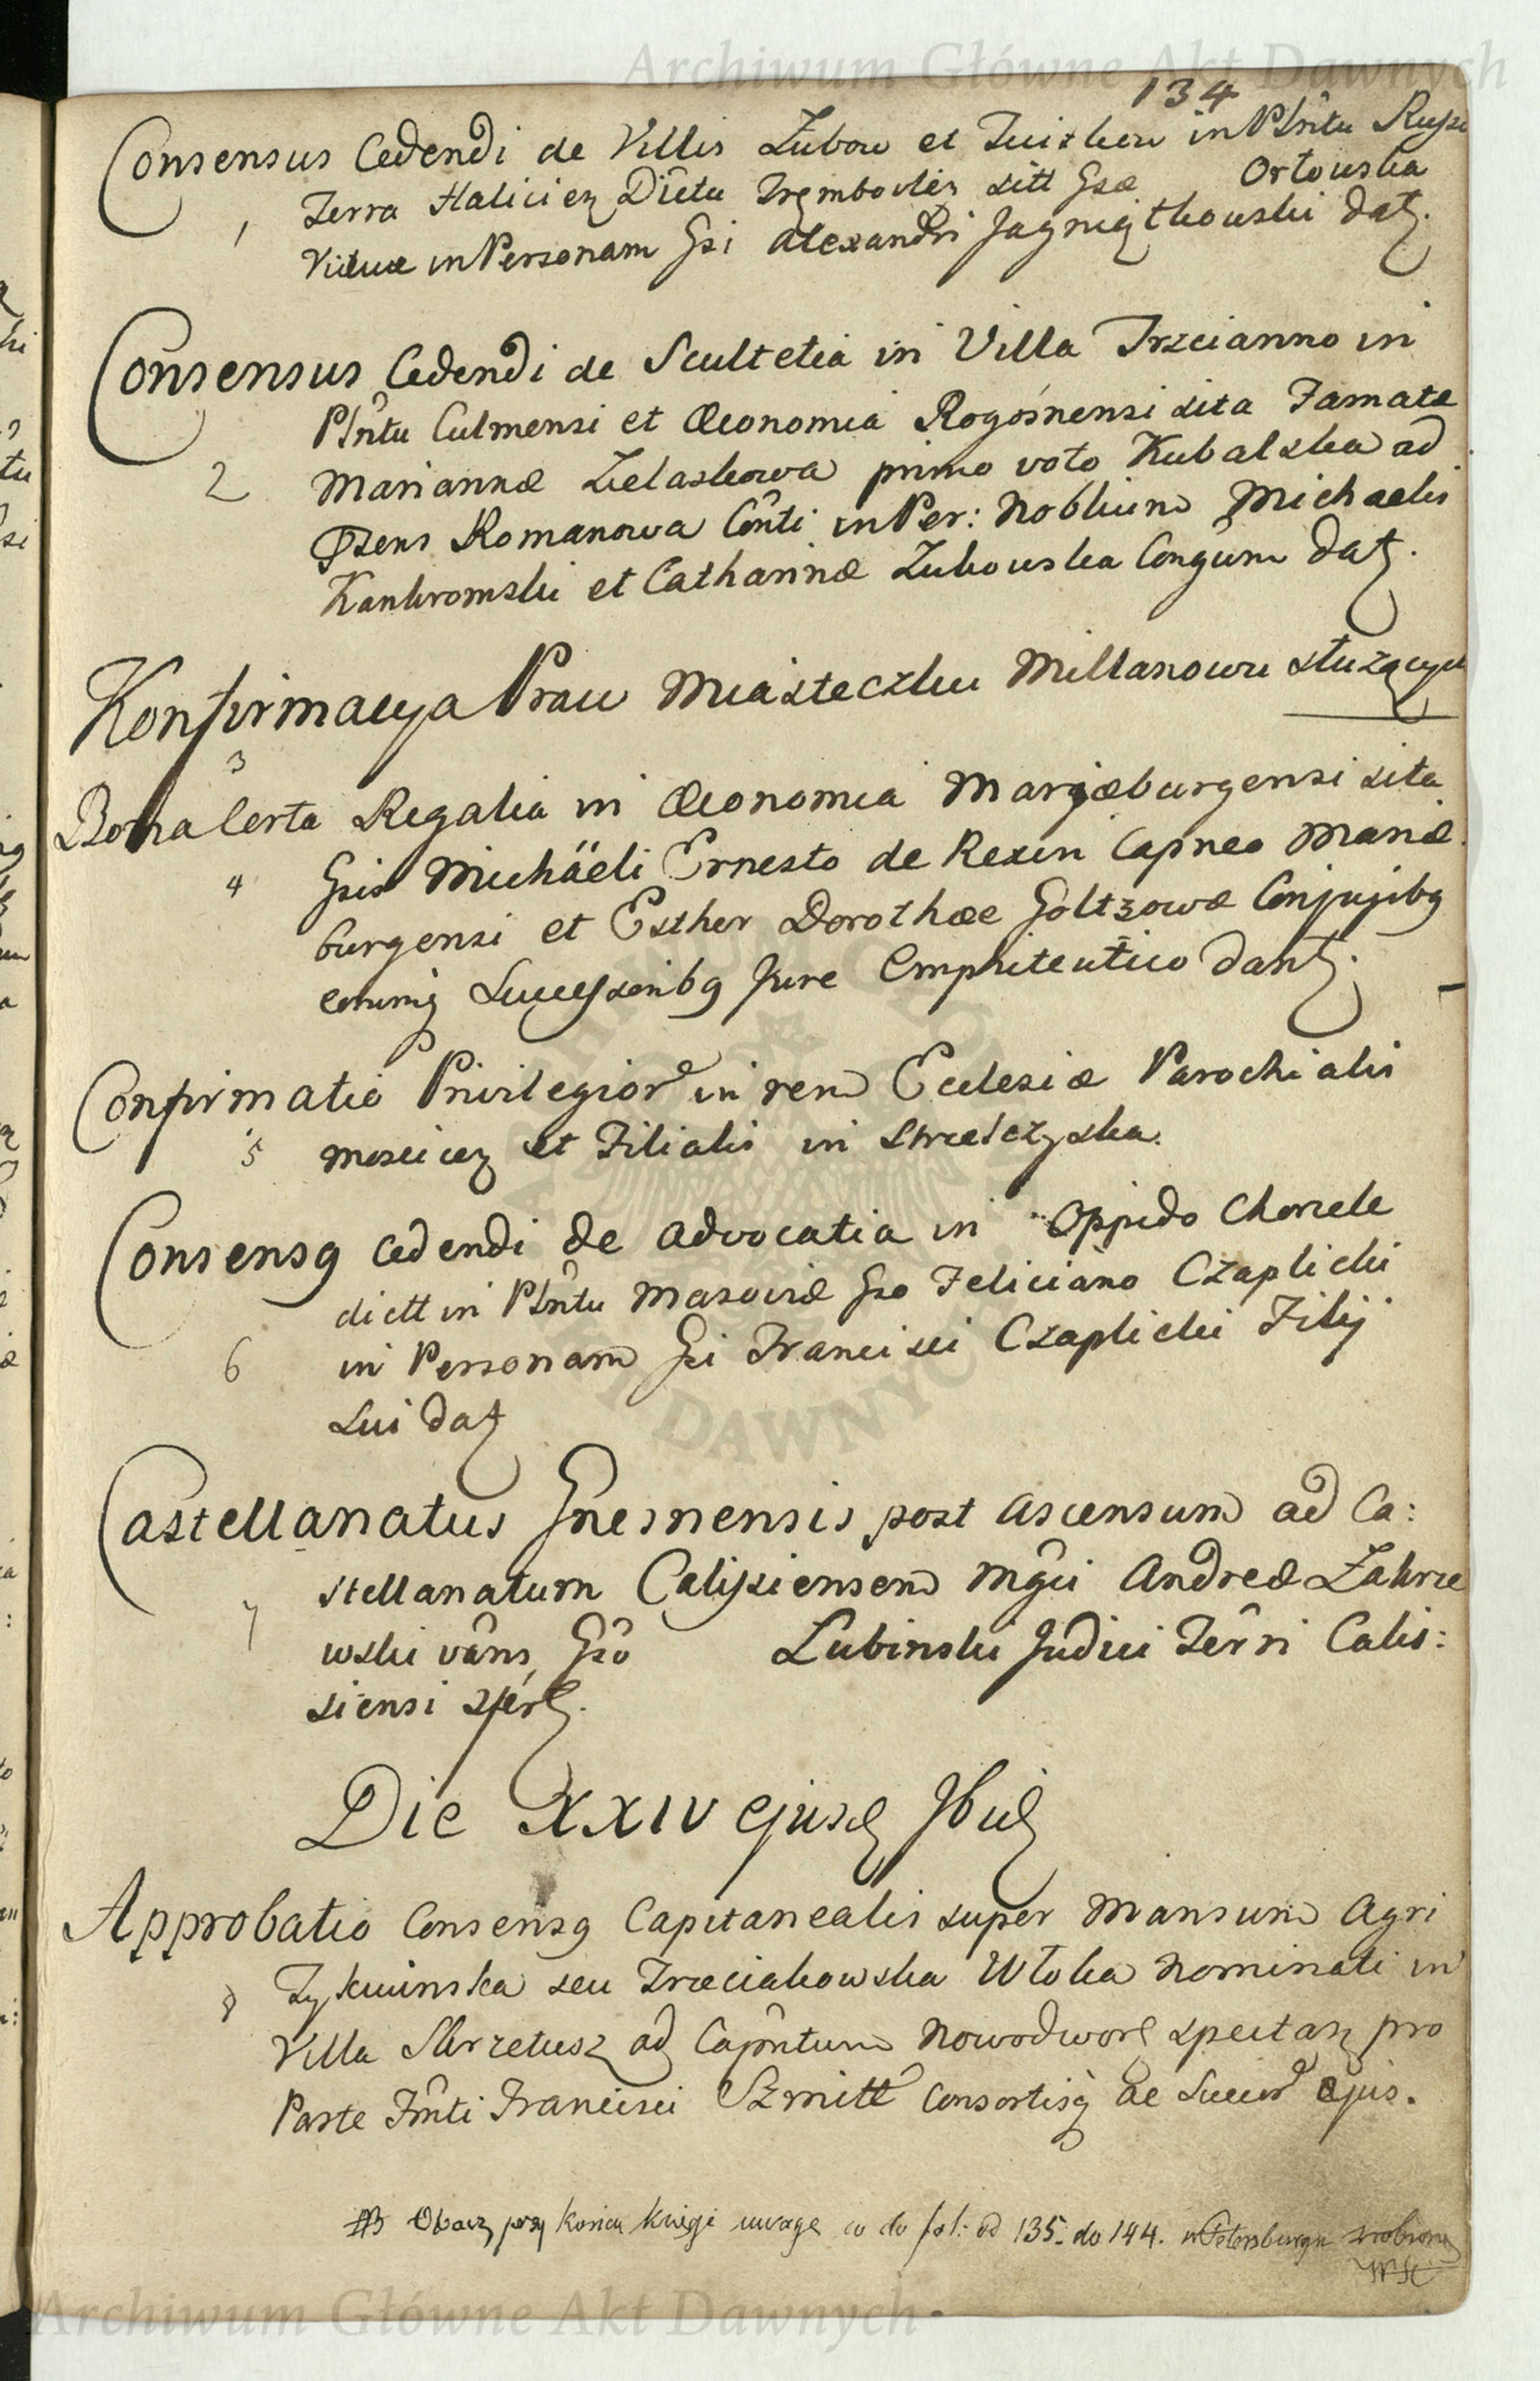 Archiwum Główne Akt Dawnych
134
Consensus Cedendi de Villis Zubow et in Plńtu Russi
1 Terra Halicien Diêtu Trembovlen sitt Gsæ Orłouska
Viduæ in Personam Gsi Alexandri Jagniątkouski dat.
Consensus Cedendi de Scultetia in Villa Trzcianno in
Plńtu Culmensi et Œconomia Rogosnensi sita Famatæ
2 Mariannæ Zelaskowa primo voto Kubalska ad
Psens Romanowa Cônti in Per: Nobilium Michaelis
Kankromski et Catharinæ Zukouska Congûm dat.
Konfirmacya Praw Miasteczku Millanowu służących
3
Bona Certa Regalia in Œconomia Mariæburgensi sita
4 Gsis Michäeli Ernesto de Rexin Capneo Mariæ
burgensi et Esther Dorothæe Goltzowæ Conjujibg
eorumq Successoribg Jure Emphiteutico dant.
Confirmatio Privilegior in rem Ecclesiæ Parochialis
5 Moscicen et Filialis in
Consensg cedendi de Advocatia in Oppido Chorzele
dictt in Plńtu Masoviæ Gso Feliciano Czaplicki
6 in Personam Gsi Francisci Czaplicki Filij
sui dat
Castellanatus Gnesnensis post ascensum ad Ca:
stellanatum Calissiensem Mgci Andreæ Zakrze
7 wski vâns Gsô Łubinski Judici Terrî Calis:
siensi
Die XXIV ejusd
Approbatio Consensg Capitanealis super Mansum Agri
8 Zykwinska seu Trzeciakowska Włoka nominati in
Villa Skrzetusz ad Capntum Nowodwor spectan pro
Parte Fmti Francisci Szmitt Consortisq ac Succor ejus.
NB Obacz przy końcu księgi uwagę co do fol: od 135. do 144. w Petersburgu zrobioną
Archiwum Główne Akt Dawnych